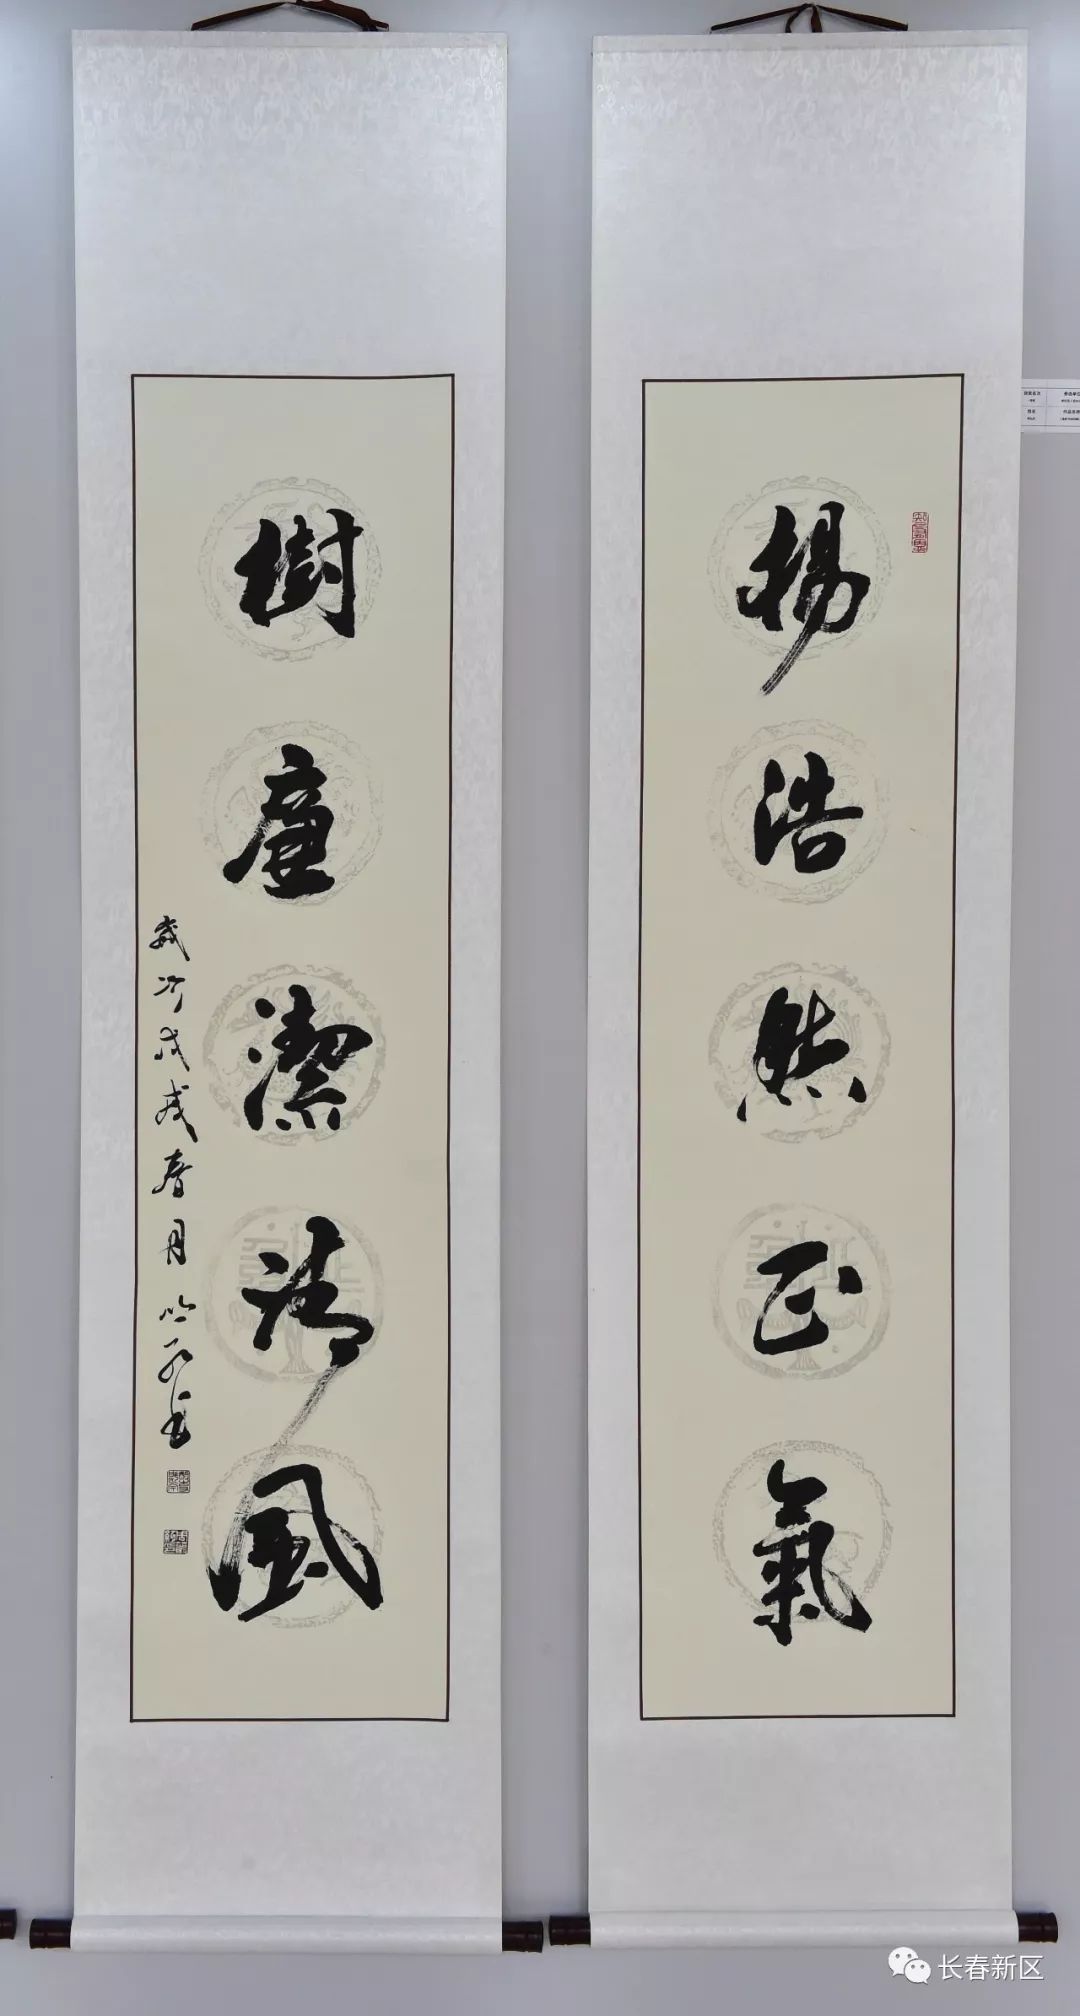 揚浩然正氣
樹廉潔清風
歲次戊戌春月
长春新区